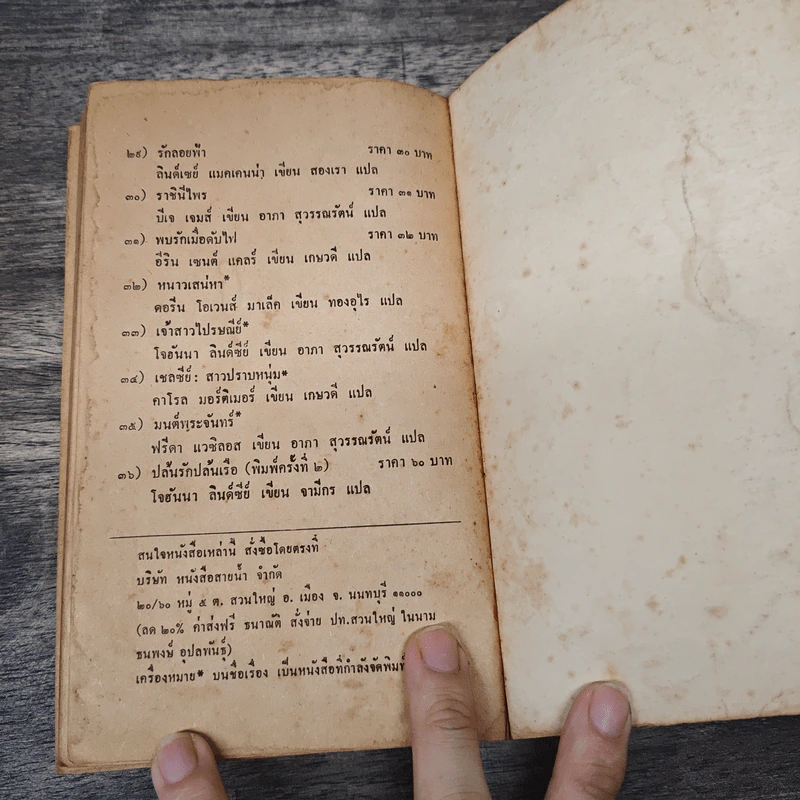 ๒๙) รักลอยฟ้า ราคา ๓๐ บาท
ลินด์เซย์ แมคเคนน่า เขียน สองเรา แปล
๓๐) ราชินีไพร ราคา ๓๑ บาท
บีเจ เจมส์ เขียน อาภา สุวรรณรัตน์ แปล
๓๑) พบรักเมื่อดับไฟ ราคา ๓๒ บาท
อีริน เซนต์ แคลร์ เขียน เกษวดี แปล
๓๒) หนาวเสน่หา*
ดอรีน โอเวนส์ มาเล็ค เขียน ทองอุไร แปล
๓๓) เจ้าสาวไปรษณีย์*
โจฮันนา ลินด์ซีย์ เขียน อาภา สุวรรณรัตน์ แปล
๓๔) เชลซีย์: สาวปราบหนุ่ม*
คาโรล มอร์ติเมอร์ เขียน เกษวดี แปล
๓๕) มนต์พระจันทร์*
ฟรีดา แวซิลอส เขียน อาภา สุวรรณรัตน์ แปล
๓๖) ปล้นรักปล้นเรือ (พิมพ์ครั้งที่ ๒) ราคา ๖๐ บาท
โจฮันนา ลินด์ซีย์ เขียน จามีกร แปล
สนใจหนังสือเหล่านี้ สั่งซื้อโดยตรงที่
บริษัท หนังสือสายน้ำ จำกัด
๒๐/๖๐ หมู่ ๕ ต. สวนใหญ่ อ. เมือง จ. นนทบุรี ๑๑๐๐๐
(ลด ๒๐% ค่าส่งฟรี ธนาณัติ สั่งจ่าย ปท.สวนใหญ่ ในนาม
ธนพงษ์ อุปลพันธุ์)
เครื่องหมาย* บนชื่อเรื่อง เป็นหนังสือที่กำลังจัดพิมพ์